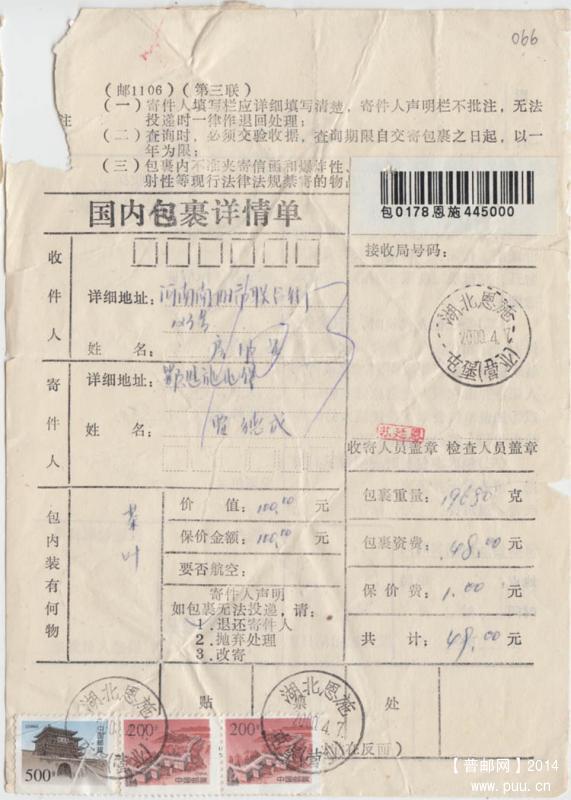 066
（邮1106）（第三联）
（一）寄件人填写栏应详细填写清楚，寄件人声明栏不批注，无法
投递时一律作退回处理；
注
（二）查询时，必须交验收据，查询期限自交寄包裹之日起，以一
年为限；
（三）包裹内不准夹寄信函和爆炸性、
射性等现行法律法规禁寄的物
包0178恩施445000
国内包裹详情单
接收局号码：
收件人
详细地址：河南南阳市联合街
姓 名：
湖北恩施
2000.4.7
寄件人
详细地址：
姓 名：
收寄人员盖章 检查人员盖章
包内装有何物
茶叶
价 值：100.00 元
保价金额：100.00 元
要否航空：
寄件人声明
如包裹无法投递，请：
1．退还寄件人
2．抛弃处理
3．改寄
包裹重量：19690 克
包裹资费：48.00 元
保 价 费：1.00 元
共 计：49.00 元
贴 票 处
(在反面)
湖北恩施
湖北恩施
2000.4.7
500分
中国邮政
200分
中国邮政
200分
中国邮政
【普邮网】2014
www.puu.cn